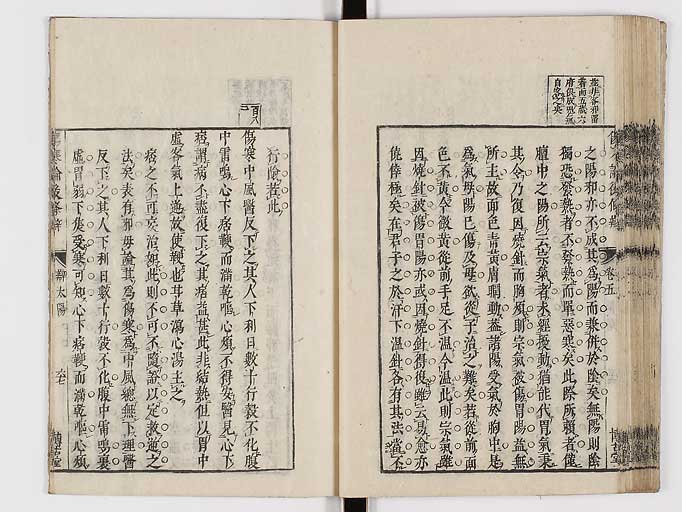 之陽邪亦不成其爲陽而兼併於陰矣無陽則陰
獨惡發熱者不發熱而單惡寒矣此際所賴者僅
膻中之陽所云宗氣者未經擾動猶能代胃氣秉
其令乃復因燒針而胸煩則宗氣被傷胃陽益無
所主故面色青黃膚瞤動蓋諸陽受氣於胸中是
爲氣母陽已傷及母欲從子治之難矣若從前面
色不黃今微黃從前手足不溫今溫此則宗氣雖
因燒針被傷胃陽亦或因燒針得復雖云易愈亦
僥倖極矣在君子之於汗下溫針各有其法當不
卷五
行險若此
百八
三
傷寒中風醫反下之其人下利日數十行穀不化腹
中雷鳴心下痞鞕而滿乾嘔心煩不得安醫見心下
痞謂病不盡復下之其痞益甚此非結熱但以胃中
虛客氣上逆故使鞕也甘草瀉心湯主之
痞之不可妄治如此則不可不隨證以定救逆之
法矣表有邪毋論其爲傷寒爲中風總無下理醫
反下之其人下利日數十行穀不化腹中雷鳴裏
虛胃弱下焦受寒可知心下痞鞕而滿乾嘔心煩
辨太陽
六七
博古堂